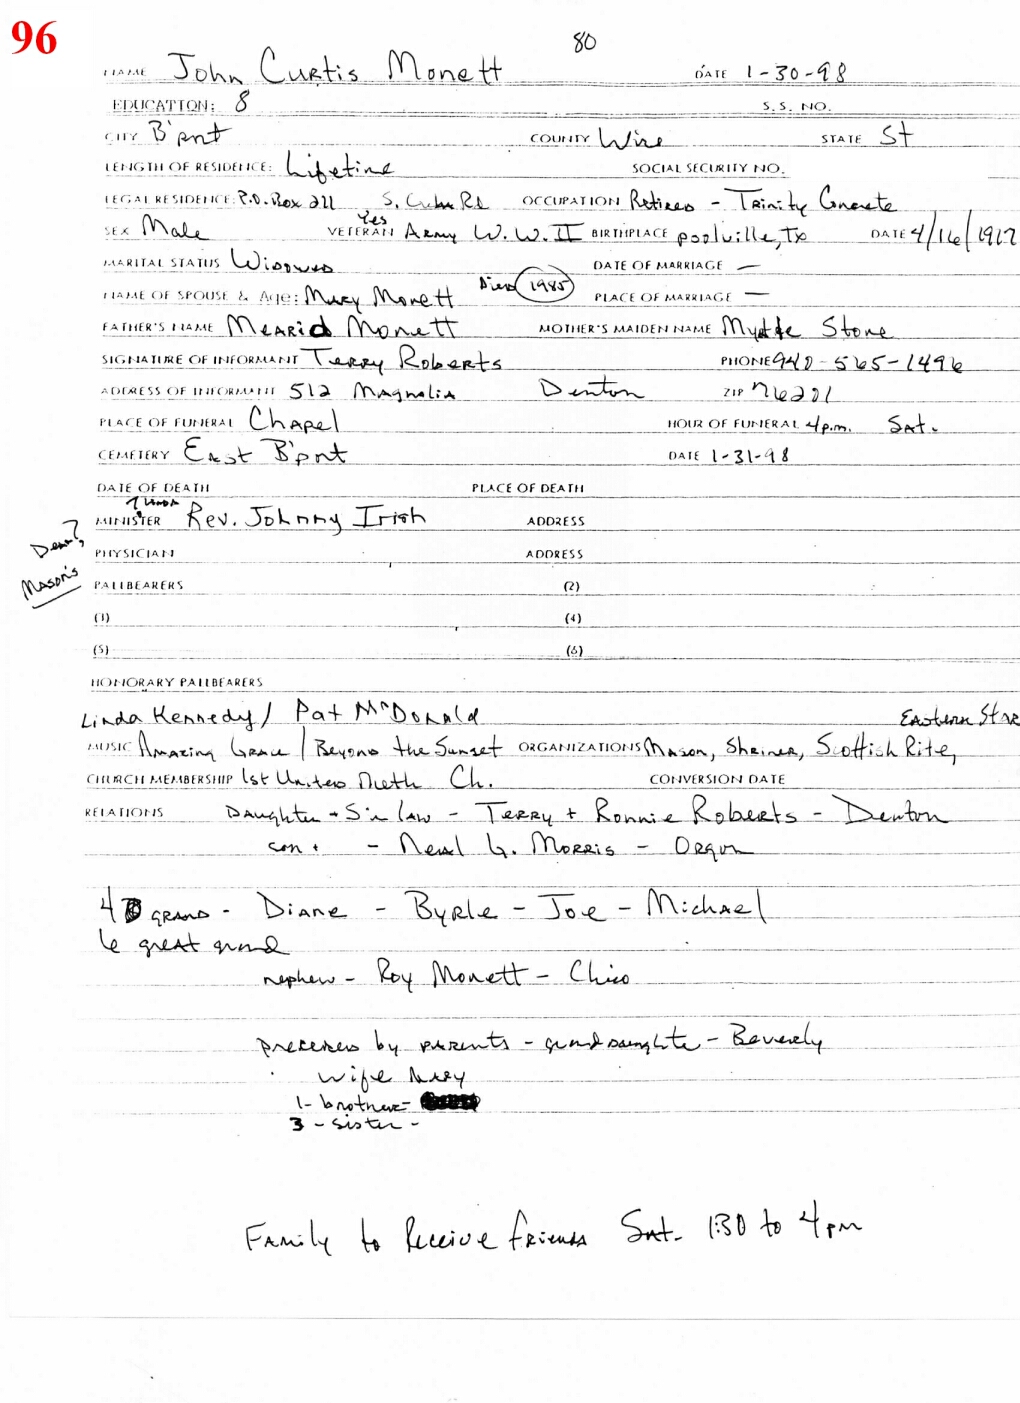 96
80
NAME John Curtis Monett DATE 1-30-98
EDUCATION: 8 S.S. NO.
CITY B'port COUNTY Wise STATE St
LENGTH OF RESIDENCE: Lifetime SOCIAL SECURITY NO.
LEGAL RESIDENCE: P.O. Box 211 S. Cuba Rd OCCUPATION Retired - Trinity Concrete
SEX Male VETERAN Yes Army W.W.II BIRTHPLACE poolville, Tx DATE 4/16/1917
MARITAL STATUS Widowed DATE OF MARRIAGE —
NAME OF SPOUSE & Age: Mary Monett Died 1985 PLACE OF MARRIAGE —
FATHER'S NAME Mearid Monett MOTHER'S MAIDEN NAME Stone
SIGNATURE OF INFORMANT Terry Roberts PHONE 940-565-1496
ADDRESS OF INFORMANT 512 Magnolia Denton ZIP 76201
PLACE OF FUNERAL Chapel HOUR OF FUNERAL 4p.m. Sat.
CEMETERY East B'port DATE 1-31-98
DATE OF DEATH PLACE OF DEATH
MINISTER Rev. Johnny Irish ADDRESS
PHYSICIAN ADDRESS
Mason's
PALLBEARERS (2)
(3) (4)
(5) (6)
HONORARY PALLBEARERS
Linda Kennedy / Pat McDonald Eastern Star
MUSIC Amazing Grace / Beyond the Sunset ORGANIZATIONS Mason, Shriner, Scottish Rite,
CHURCH MEMBERSHIP 1st United Meth Ch. CONVERSION DATE
RELATIONS Daughter + S'n law - Terry + Ronnie Roberts - Denton
son + - Neal G. Morris - Orgon
4 grand - Diane - Byrle - Joe - Michael
6 great grand
nephew - Roy Monett - Chico
preceded by parents - granddaughter - Beverly
wife Mary
1- brother-
3 - sister -
Family to Receive friends Sat. 1:30 to 4pm